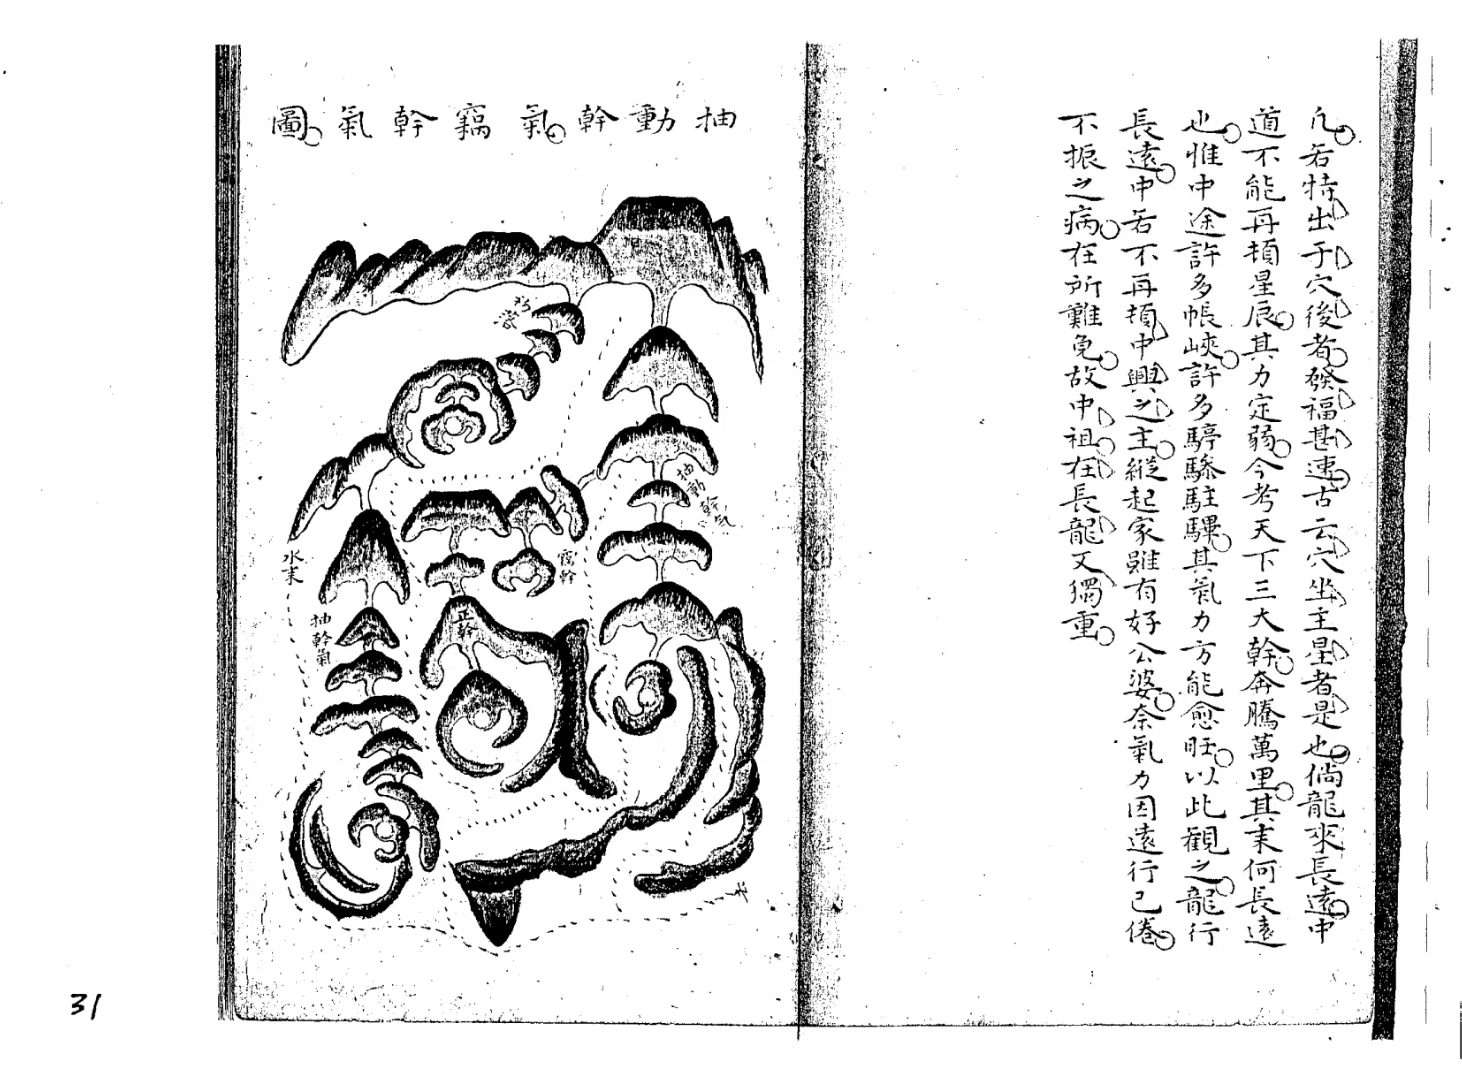 凢若特出于穴後者發福甚速古云穴坐主星者是也倘龍來長遠中
道不能再頓星辰其力定弱今考天下三大幹奔騰萬里其来何長遠
也惟中途許多帳峽許多駍駼駐驆其氣力方能愈旺以此觀之龍行
長遠中若不再頓中興之主縱起家雖有好公婆奈氣力因遠行已倦
不振之病在所難免故中祖在長龍又獨重
抽動幹氣竊幹氣圖
抽動幹气
竊幹
正幹
水来
抽幹氣